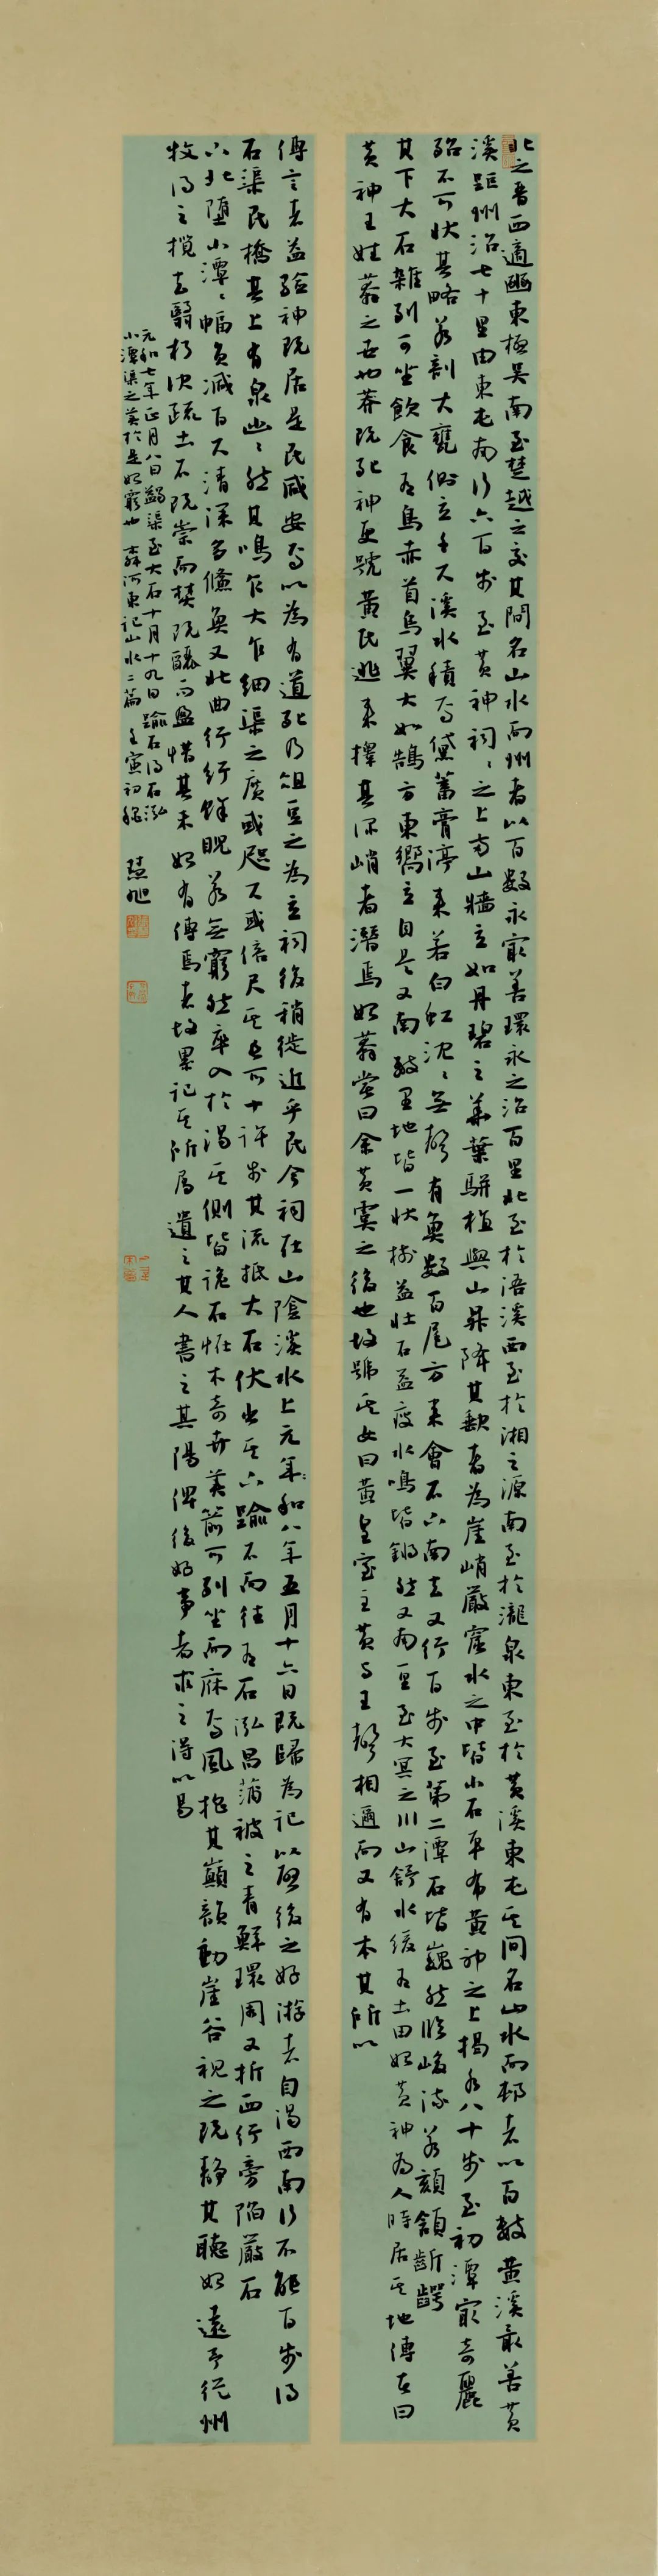 北之晉西適豳東極吳南至楚越之交其間名山水而州者以百數永最善環永之治百里北至於浯溪西至於湘之源南至於瀧泉東至於黃溪東屯其間名山水而邨者以百數黃溪最善黃
溪距州治七十里由東屯南行六百步至黃神祠〻之上兩山牆立如丹碧之華葉駢植與山昇降其缺者為崖峭巖窟水之中皆小石平布黃神之上揭水八十步至初潭最奇麗
殆不可狀其略若剖大甕側立千尺溪水積焉黛蓄膏渟來若白虹沈〻無聲有魚數百尾方來會石下南去又行百步至第二潭石皆巍然臨峻流若頦頷齗齶
其下大石雜列可坐飲食有鳥赤首烏翼大如鵠方東嚮立自是又南數里地皆一狀樹益壯石益瘦水鳴皆鏘然又南一里至大冥之川山舒水緩有土田始黃神為人時居其地傳者曰
黃神王姓莽之世也莽既死神更號黃氏逃來擇其深峭者潛焉始莽嘗曰余黃虞之後也故號其女曰黃皇室主黃與王聲相邇而又有本其所以
傳言者益驗神既居是民咸安焉以為有道死乃俎豆之為立祠後稍徙近乎民今祠在山陰溪水上元年和八年五月十六日既歸為記以啟後之好游者自渴西南行不能百步得
石渠民橋其上有泉幽〻然其鳴乍大乍細渠之廣或咫尺或倍尺其長可十許步其流抵大石伏出其下踰石而往有石泓昌蒲被之青鮮環周又折西行旁陷巖石
下北墮小潭〻幅員減百尺清深多鯈魚又北曲行紆餘睨若無窮然卒入於渴其側皆詭石怪木奇卉美箭可列坐而庥焉風搖其巔韻動崖谷視之既靜其聽始遠予從州
牧得之攬去翳朽決疏土石既崇而焚既釃而盈惜其未始有傳焉者故累記其所屬遺之其人書之其陽俾後好事者求之得以易
元和七年正月八日蠲渠至大石十月十九日踰石得石泓
小潭渠之美於是始窮也 河東記山水二篇 壬寅初秋 慧旭